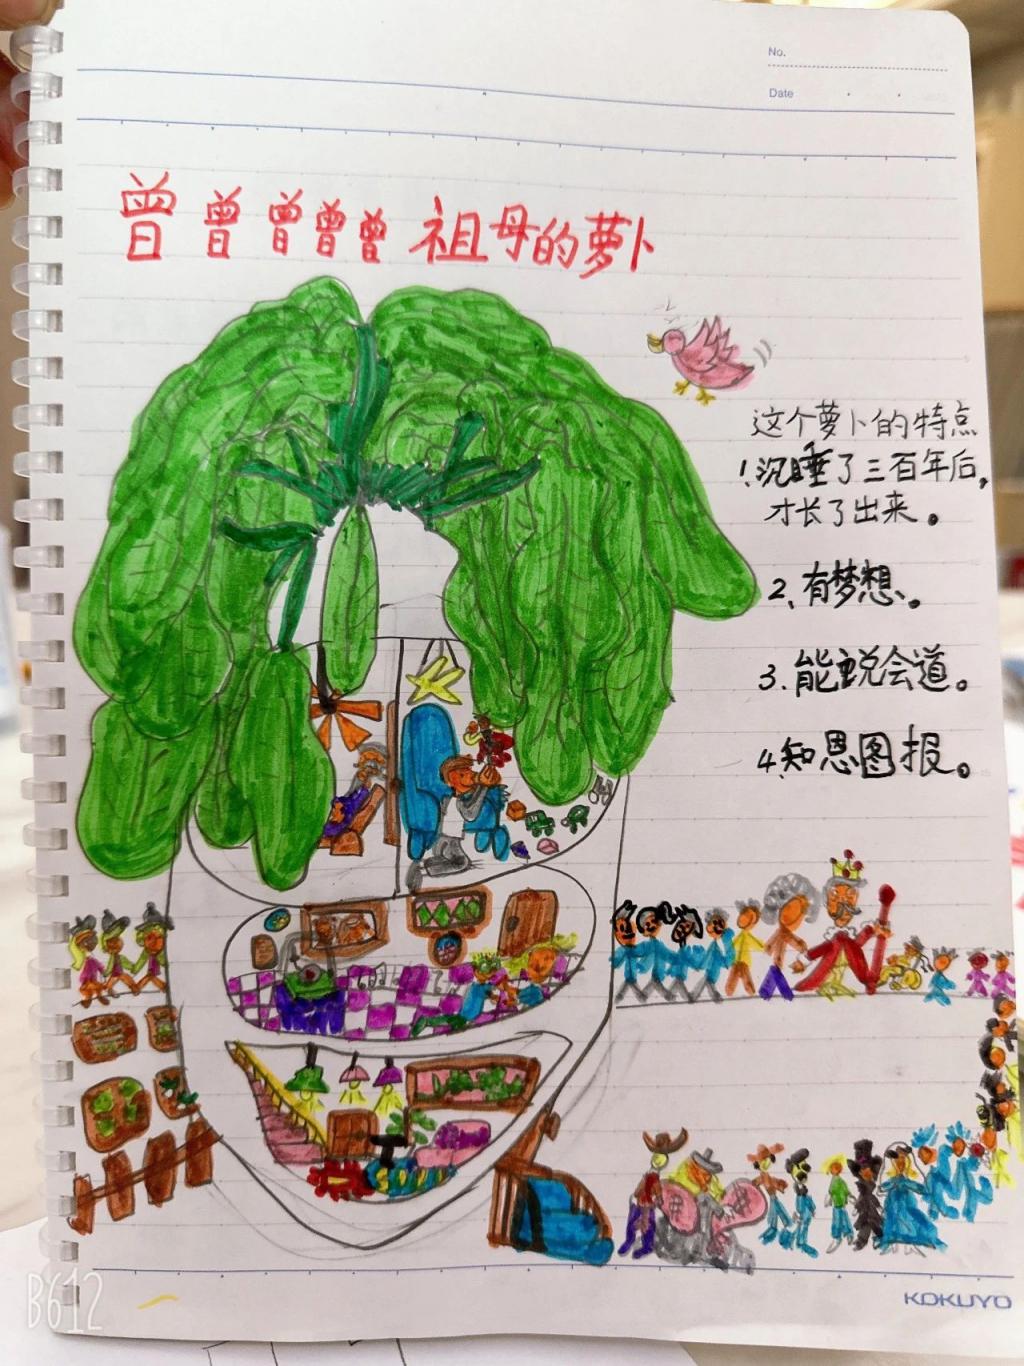 No.
Date
曾曾曾曾曾祖母的萝卜
这个萝卜的特点
1.沉睡了三百年后,
才长了出来。
2、有梦想。
3.能说会道。
4.知恩图报。
KOKUYO
B612